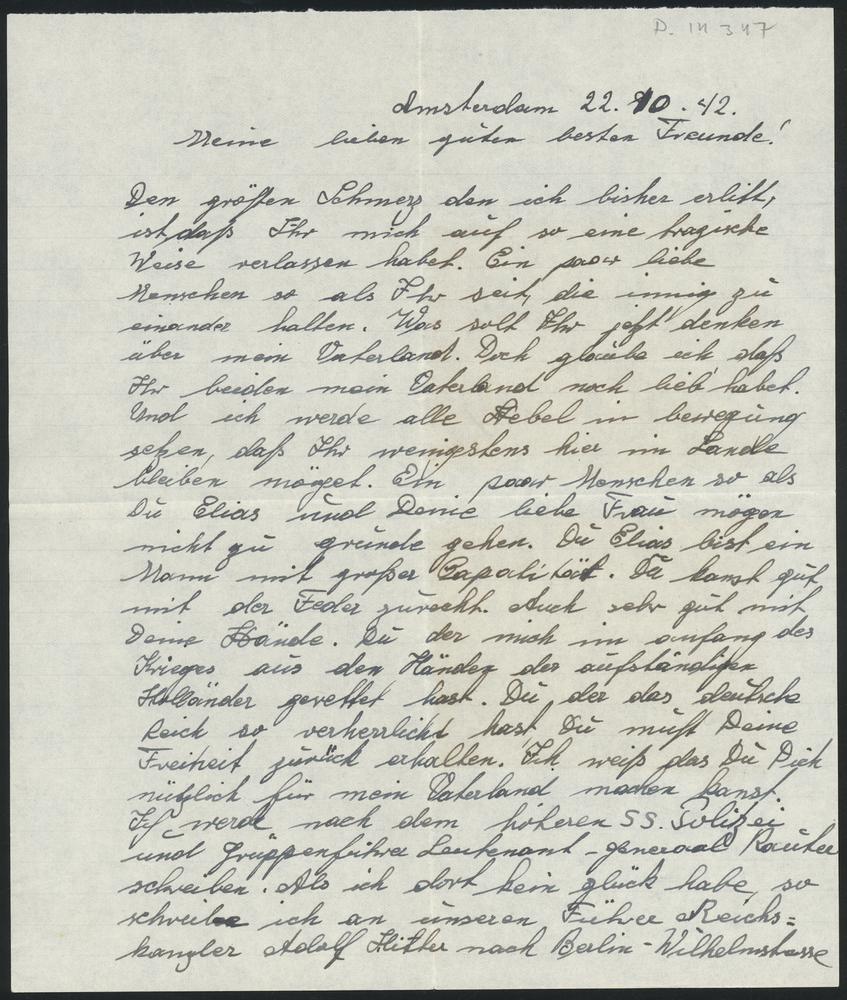 D. 14 347
Amsterdam 22. 10. 42.
Meine lieben guten besten Freunde!
Den größten Schmerz den ich bisher erlitt,
ist, daß Ihr mich auf so eine tragische
Weise verlassen habet. Ein paar liebe
Menschen so als Ihr seit, die innig zu
einander halten. Was solt Ihr jetzt denken
über mein Vaterland. Doch glaube ich daß
Ihr beiden mein Vaterland noch lieb habet.
Und ich werde alle Hebel in bewegung
setzen, daß Ihr wenigstens hier im Lande
bleiben möget. Ein paar Menschen so als
Du Elias und Deine liebe Frau mögen
nicht zu grunde gehen. Du Elias bist ein
Mann mit großer Capalität. Du kanst gut
mit der Feder zurecht. Auch sehr gut mit
Deine Hände. Du der mich im anfang des
Krieges aus den Händen der aufständigen
Holländer gerettet hast. Du, der das deutsche
Reich so verherrlicht hast, Du mußt Deine
Freiheit zurück erhalten. Ich weiß das Du Dich
nützlich für mein Vaterland machen kanst.
Ich werde nach dem höheren SS. Polizei
und Gruppenführer Leutenant-generaal Rauter
schreiben. Als ich dort kein glück habe, so
schreibe ich an unseren Führer Reichs=
kanzler Adolf Hitler nach Berlin-Wilhelmstrasse